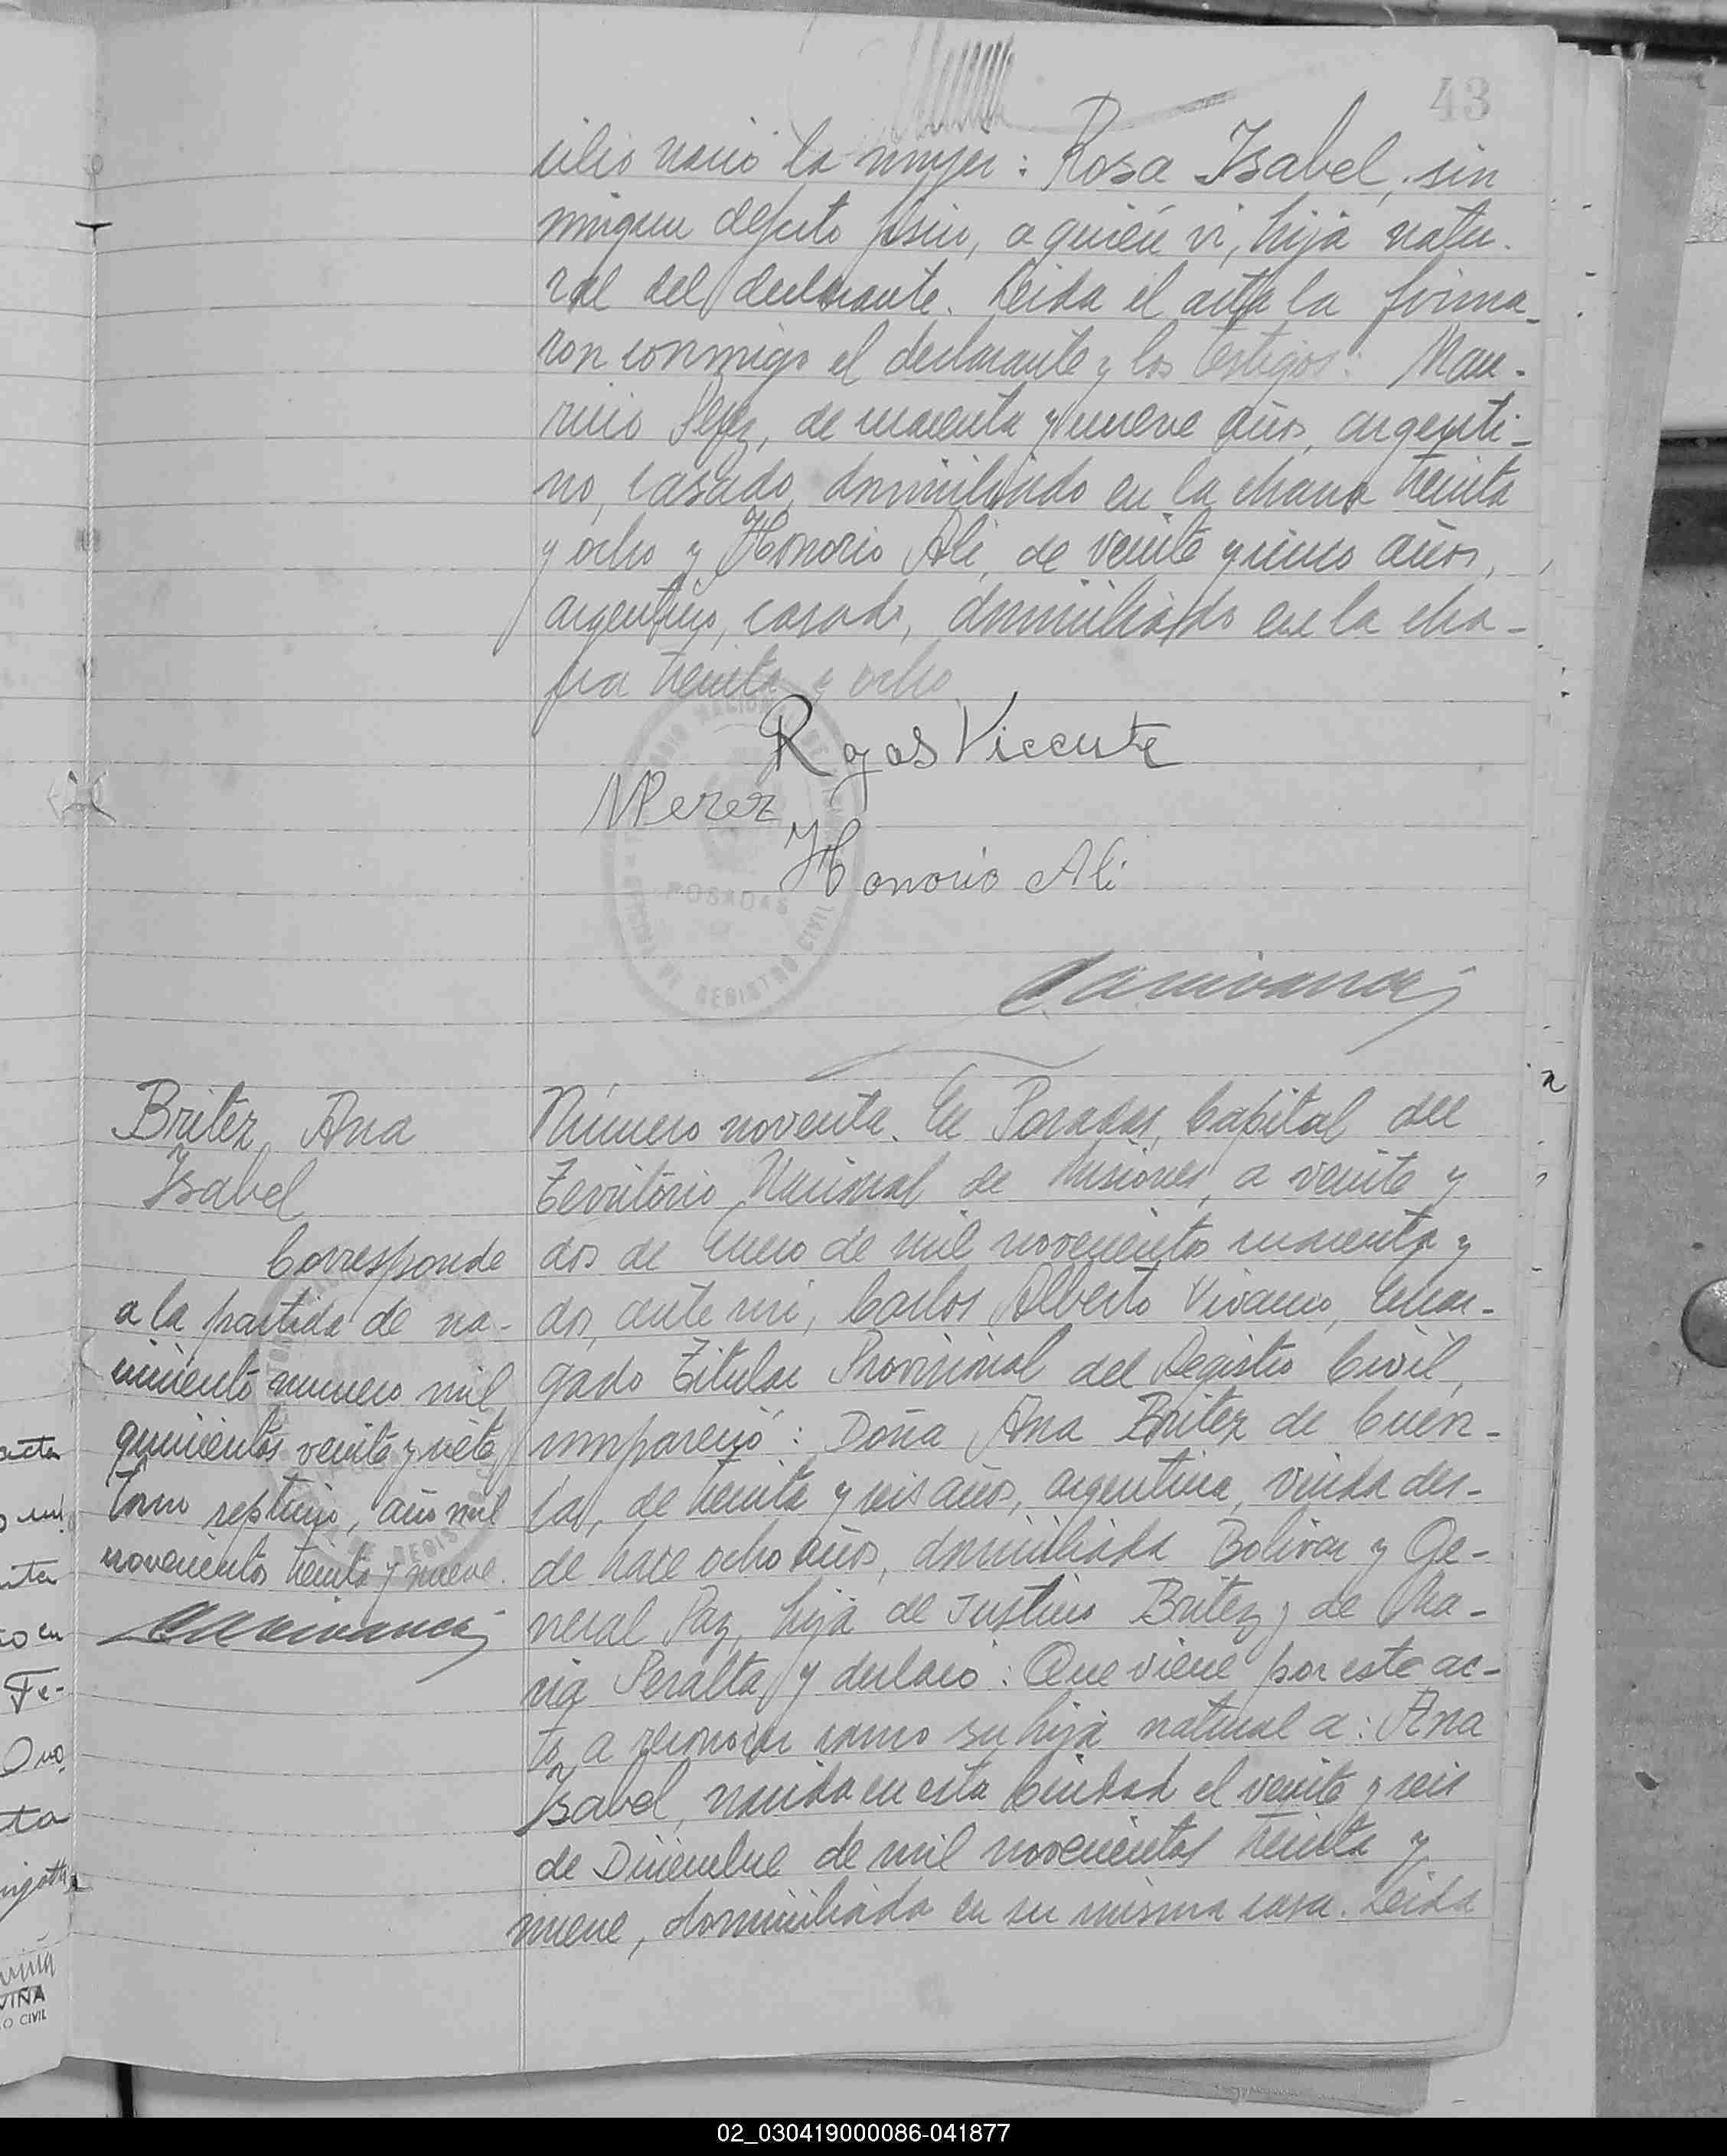 43
cilio nació la mujer: Rosa Isabel, sin
ningun defecto fisico, a quién vi, hija natu-
ral del declarante. Leida el acta la firma-
ron conmigo el declarante y los testigos: Mau-
ricio Perez, de cuarenta y nueve años, argenti-
no, casado, domiciliado en la chacra treinta
y ocho y Honorio Ali, de veinte y cinco años,
argentino, casado, domiciliado en la cha-
cra treinta y ocho
Rojas Vicente
MPerez
Honorio Ali
POSADAS
REGISTRO CIVIL
Britez, Ana
Isabel
Corresponde
a la partida de na-
cimiento numero mil
quinientos veinte y siete
tomo septimo, año mil
novecientos treinta y nueve.
Número noventa. En Posadas, Capital del
Territorio Nacional de Misiones, a veinte y
dos de Enero de mil novecientos cuarenta y
dos, ante mi, Carlos Alberto Vivanco, Encar-
gado Titular Provisional del Registro Civil,
compareció: Doña Ana Britez de Cuen-
ca, de treinta y seis años, argentina, viuda des-
de hace ocho años, domiciliada Bolivar y Ge-
neral Paz, hija de Justicio Britez y de Ma-
ria Peralta y declaró: Que viene por este ac-
to a reconocer como su hija natural a: Ana
Isabel, nacida en esta Ciudad el veinte y seis
de Diciembre de mil novecientos treinta y
nueve, domiciliada en su misma casa. Leida
VIÑA
O CIVIL
02_030419000086-041877